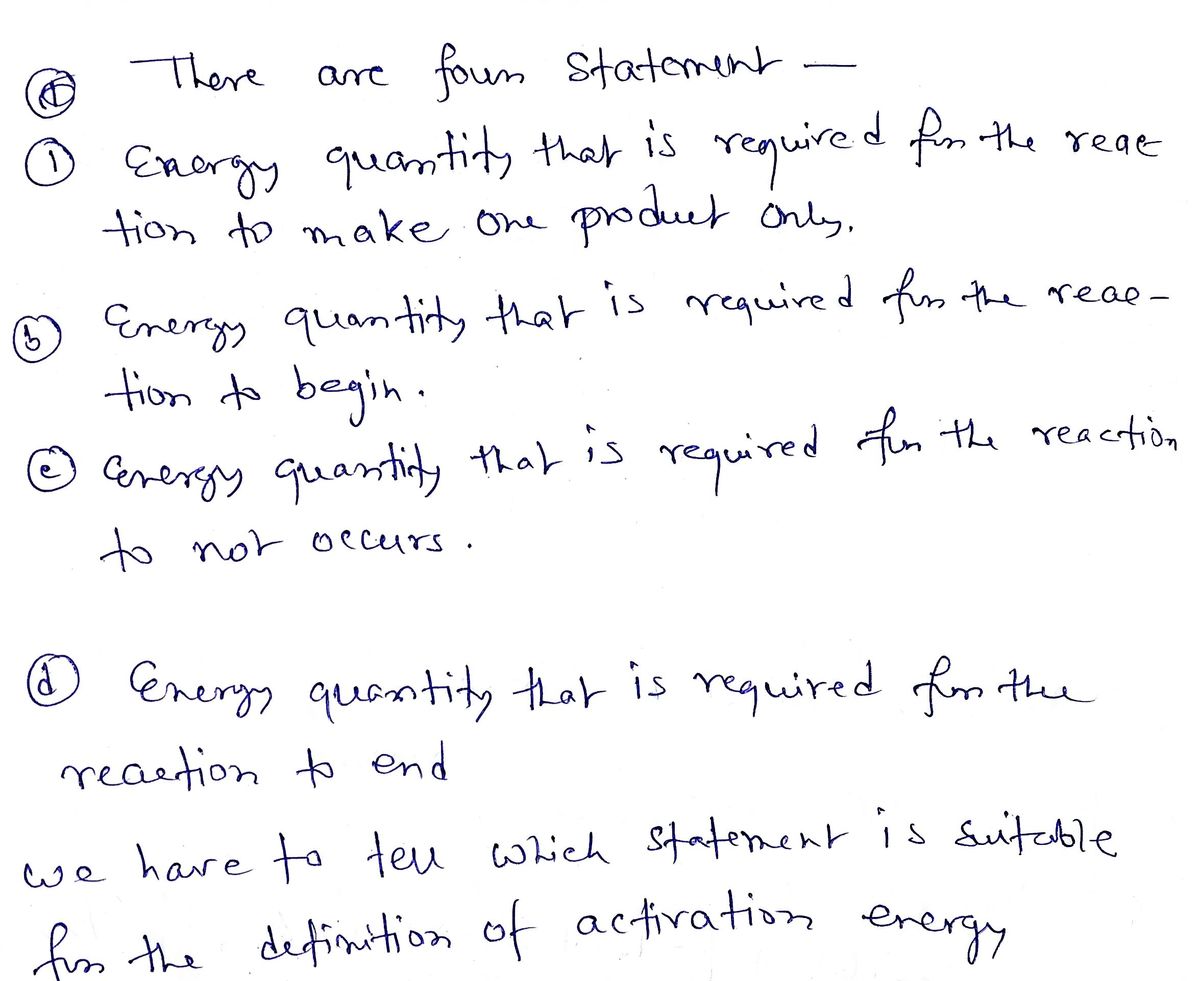 There are four Statement —
① Energy quantity that is required for the reac
tion to make one product only.
ⓑ Energy quantity that is required for the reac-
tion to begin.
ⓒ Energy quantity that is required for the reaction
to not occurs.
ⓓ Energy quantity that is required for the
reaction to end
we have to tell which statement is suitable
for the definition of activation energy